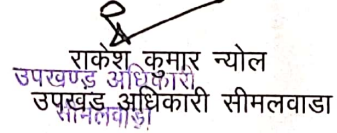 राकेश कुमार न्योल
उपखण्ड अधिकारी
उपखड अधिकारी सीमलवाडा
सीमलवाड़ा